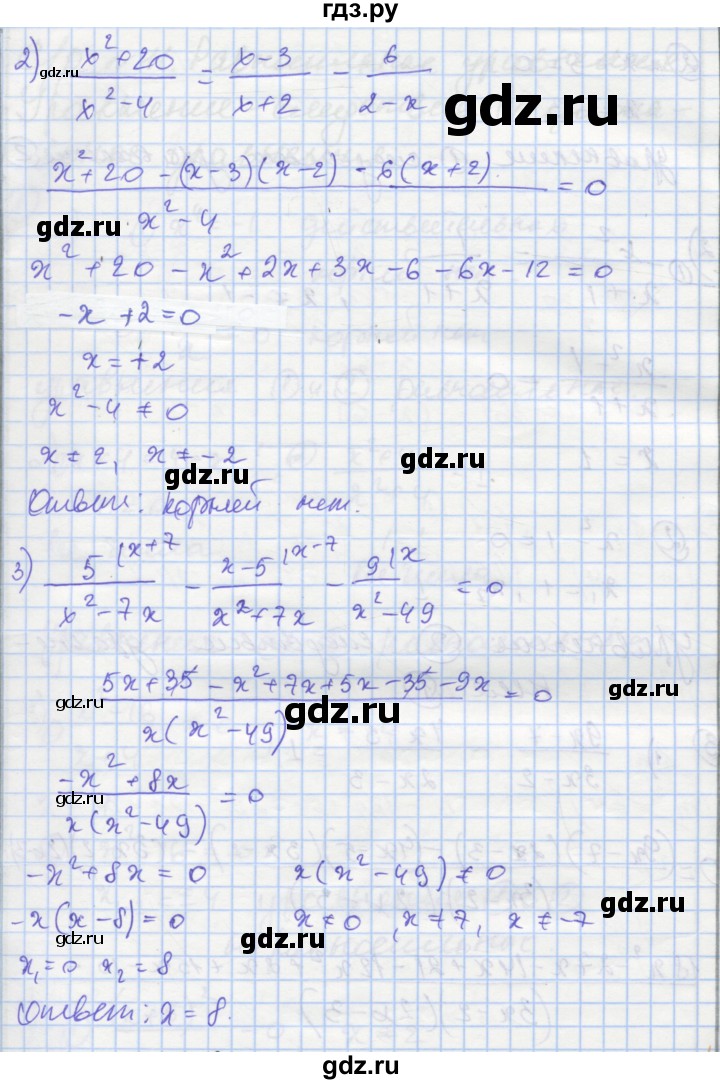 гдз.ру
2) (x²+20)/(x²-4) = (x-3)/(x+2) - 6/(2-x)
gdz.ru
gdz.ru
(x²+20-(x-3)(x-2)-6(x+2))/(x²-4) = 0
gdz.ru
x²+20-x²+2x+3x-6-6x-12=0
-x+2=0
gdz.ru
x=+2
x²-4≠0
x≠2, x≠-2
gdz.ru
Ответ: корней нет.
gdz.ru
3) 5|x+7/(x²-7x) - x-5|x-7/(x²+7x) - 9|x/(x²-49) = 0
gdz.ru
(5x+35-x²+7x+5x-35-9x)/(x(x²-49)) = 0
gdz.ru
gdz.ru
(-x²+8x)/(x(x²-49)) = 0
gdz.ru
-x²+8x=0 x(x²-49)≠0
-x(x-8)=0 x≠0, x≠7, x≠-7
gdz.ru
gdz.ru
x₁=0 x₂=8
Ответ: x=8.
gdz.ru
gdz.ru
gdz.ru